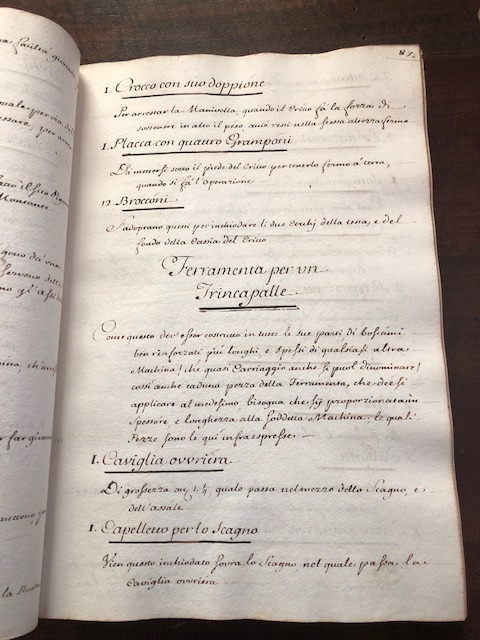 87.
1. Crocco con suo doppione
Per arrestar la Manivella, quando il Crico fà la forza di
sostener in alto il peso, acciò resti nella stessa altezza fermo
1. Placca con quattro Gramponi
Di mettersi sotto il piede del Crico per tenerlo fermo à terra,
quando si fà l'operazione
12 Brocconi
S'adoprano questi per inchiodare li due Cerchij della testa, e del
fondo della Cassia del Crico
Ferramenta per un
Trincapalle
Come questo dev'esser costrutto in tutte le sue parti di boscami
ben rinforzati più longhi, e spessi di qualsiasi altra
Machina! che quasi Carriaggio anche si puol dinominare!
cossi anche caduna pezza della Ferramenta, che deesi
applicare al medesimo bisogna che sij proporzionata in
spessore, e longhezza alla soddetta Machina, le quali
Pezze sono le qui infra espresse
1. Caviglia ovvriera
Di grossezza on. 1. ¼, quale passa nel mezzo dello Scagno, e
dell'assale
1. Capelletto per lo Scagno
Vien questo inchiodato sovra lo Scagno, nel quale passa la
Caviglia ovvriera